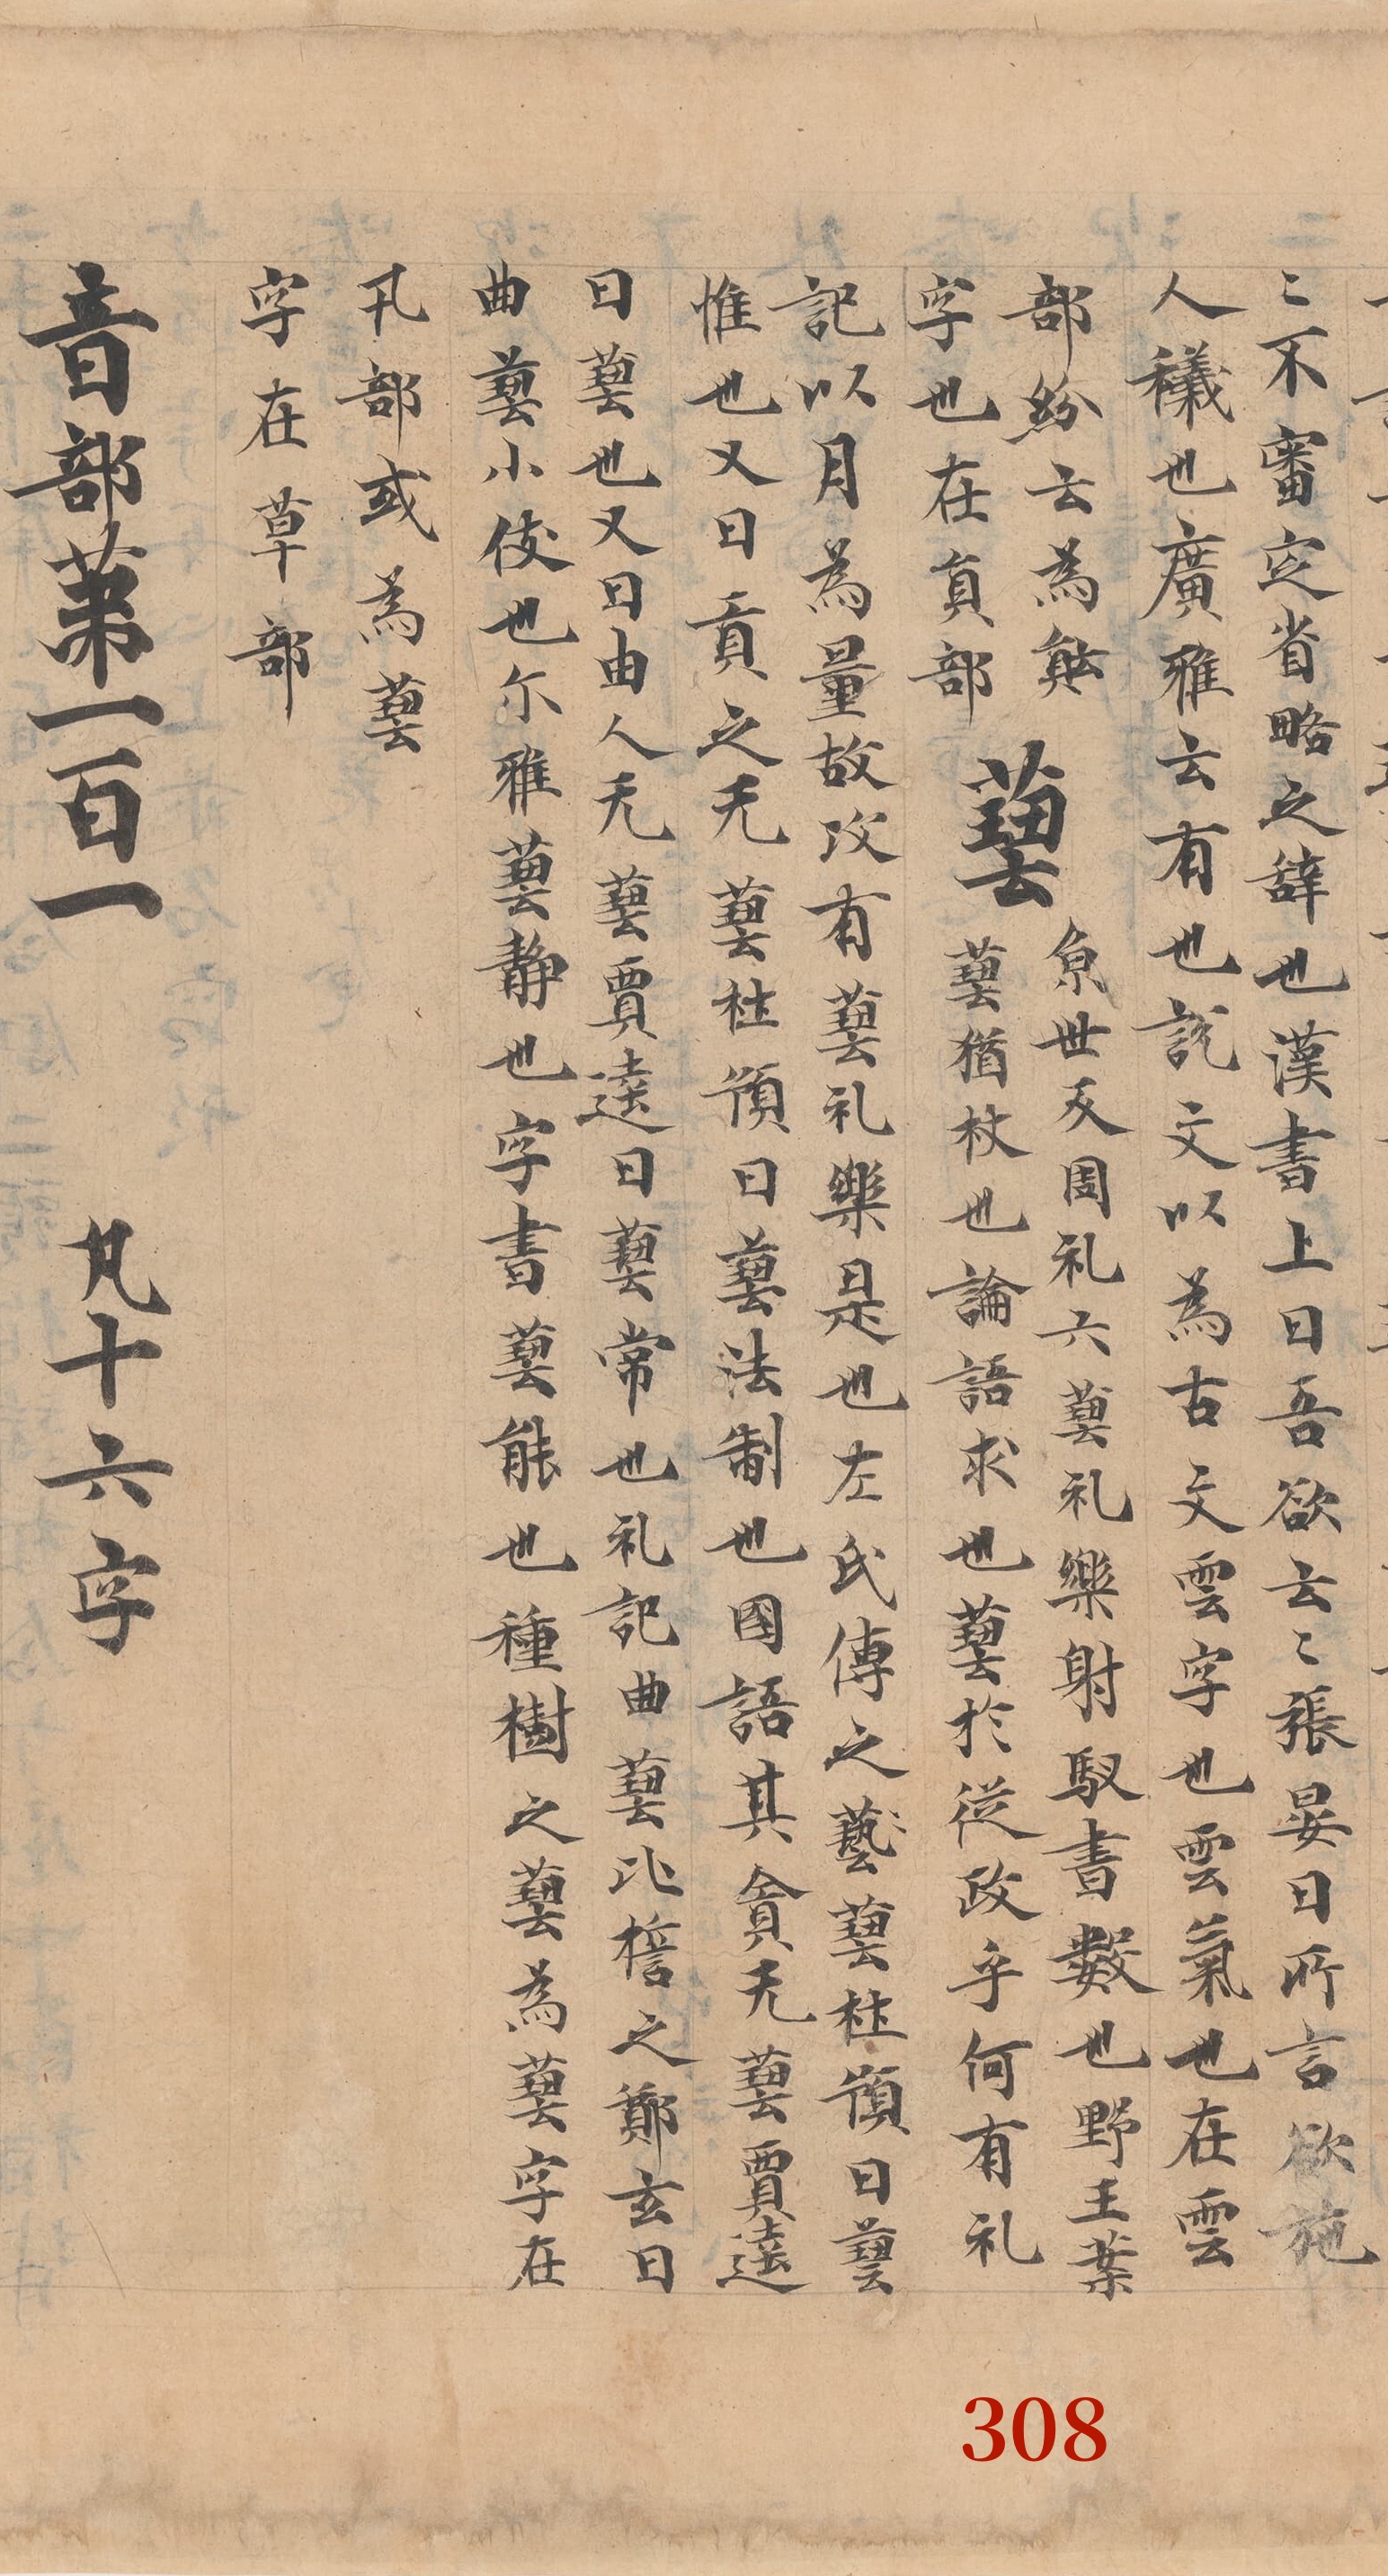 〻不審定省略之辞也漢書上曰吾欲云〻張晏曰所言欲施
人穖也廣雅云有也說文以為古文雲字也雲氣也在雲
部紛云為䰟
字也在員部
蕓
魚世反周礼六蕓礼樂射馭書數也野王案
蕓猶杖也論語求也蕓於從政乎何有礼
記以月為量故政有蕓礼樂是也左氏傳之藝〻蕓杜預曰蕓
惟也又曰貢之无蕓杜預曰蕓法制也國語其貪无蕓賈逵
曰蕓也又曰由人无蕓賈逵曰蕓常也礼記曲蕓比㨾之鄭玄曰
曲蕓小伎也尔雅蕓静也字書蕓能也種樹之蕓為蕓字在
丮部或為蕓
字在草部
音部第一百一 凡十六字
308